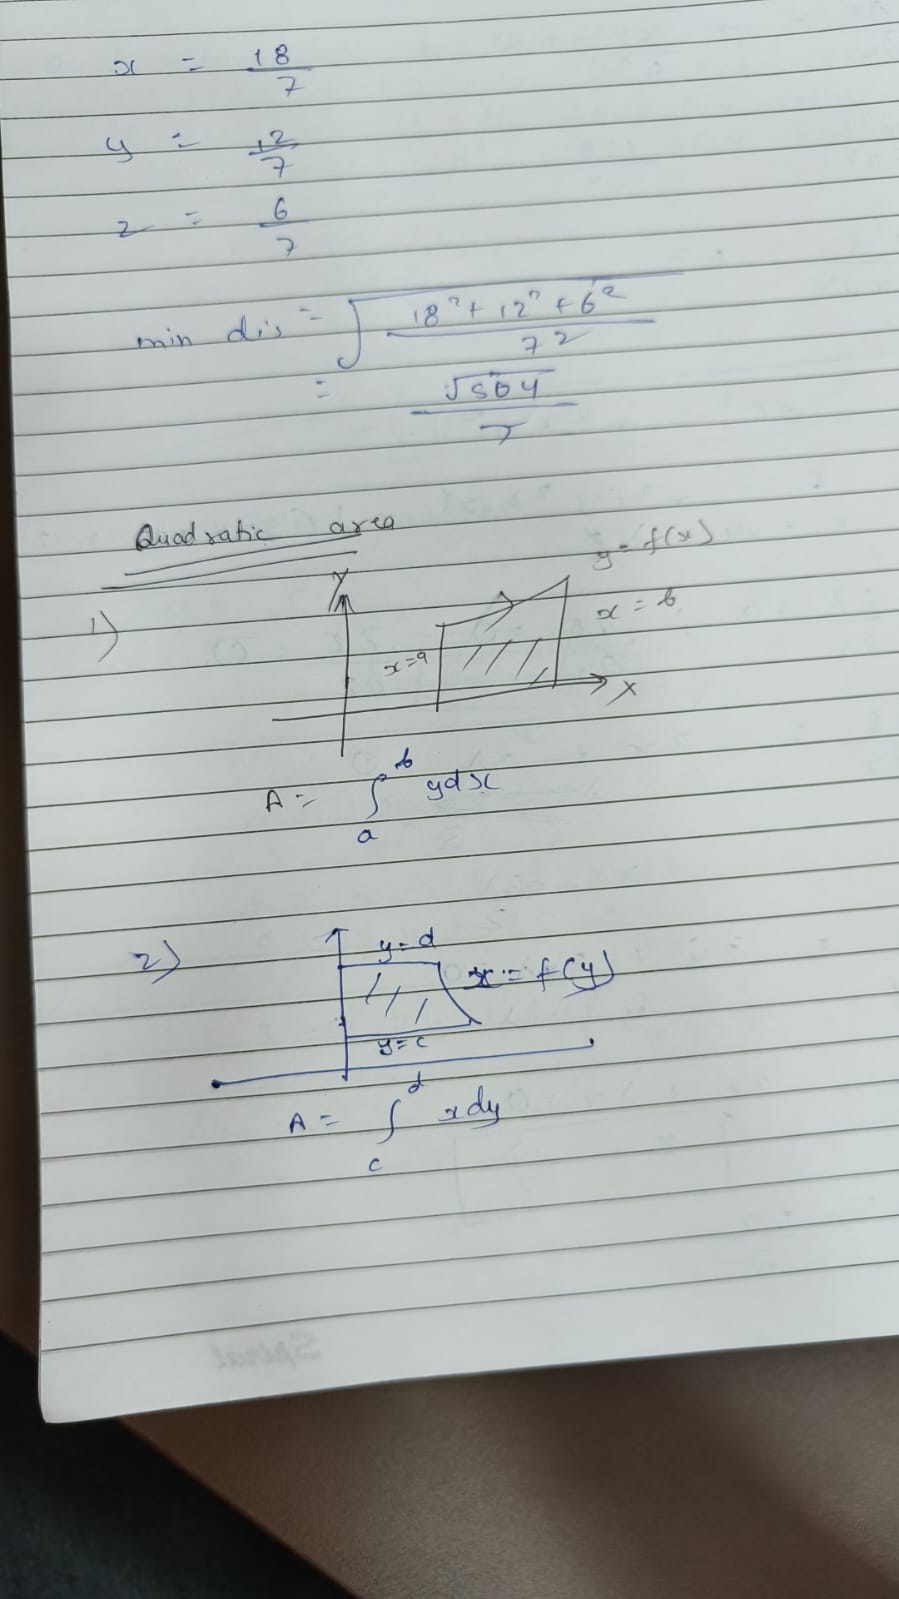 x = 18/7
y = 12/7
z = 6/7
min dis = √((18² + 12² + 6²)/7²)
= √504/7
Quadratic area
1)
Y
y = f(x)
x = b
x = a
X
A = ∫ₐᵇ y dx
2)
y = d
x = f(y)
y = c
A = ∫_c^d x dy
Spiral